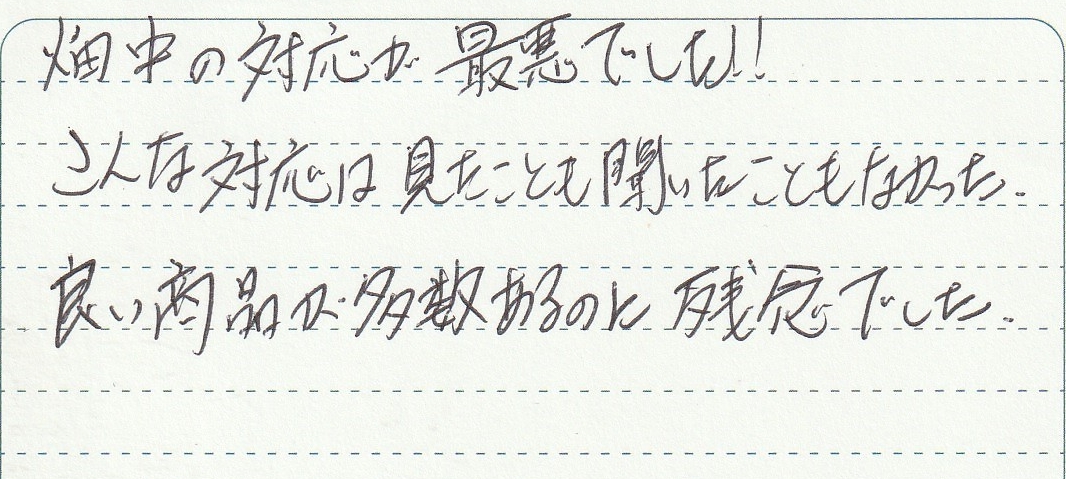 畑中の対応が最悪でした!!
こんな対応は見たことも聞いたこともなかった.
良い商品が多数あるのに残念でした.